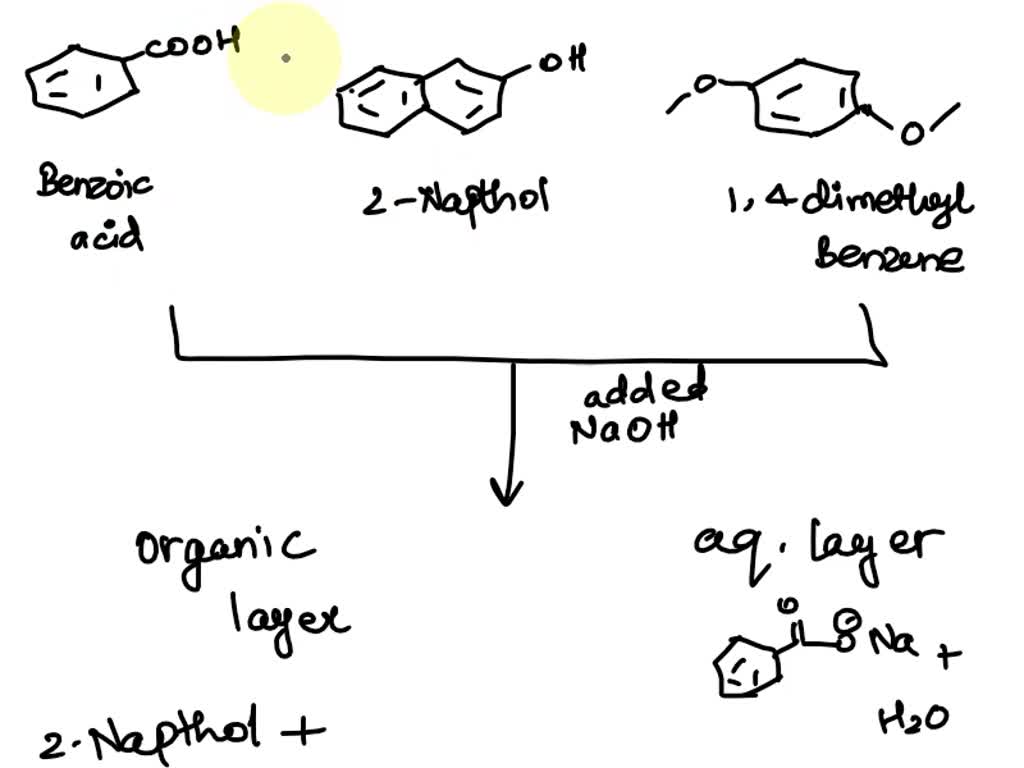 COOH
OH
O
O
Benzoic
acid
2-Napthol
1,4 dimethyl
Benzene
added
NaOH
organic
layer
aq. layer
O
O Na +
H2O
2-Napthol +